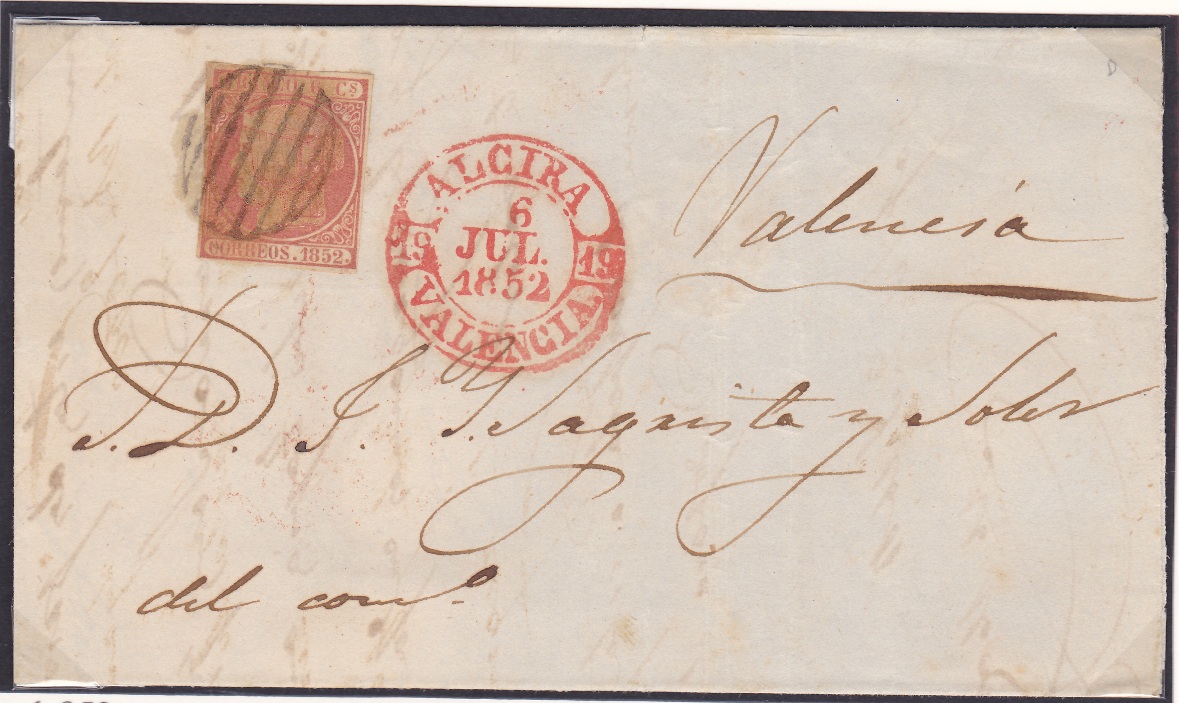 Cs
CORREOS. 1852.
ALCIRA
6
JUL.
1852
19 19
VALENCIA
Valencia
S. D. J. y Soler
del como.
D